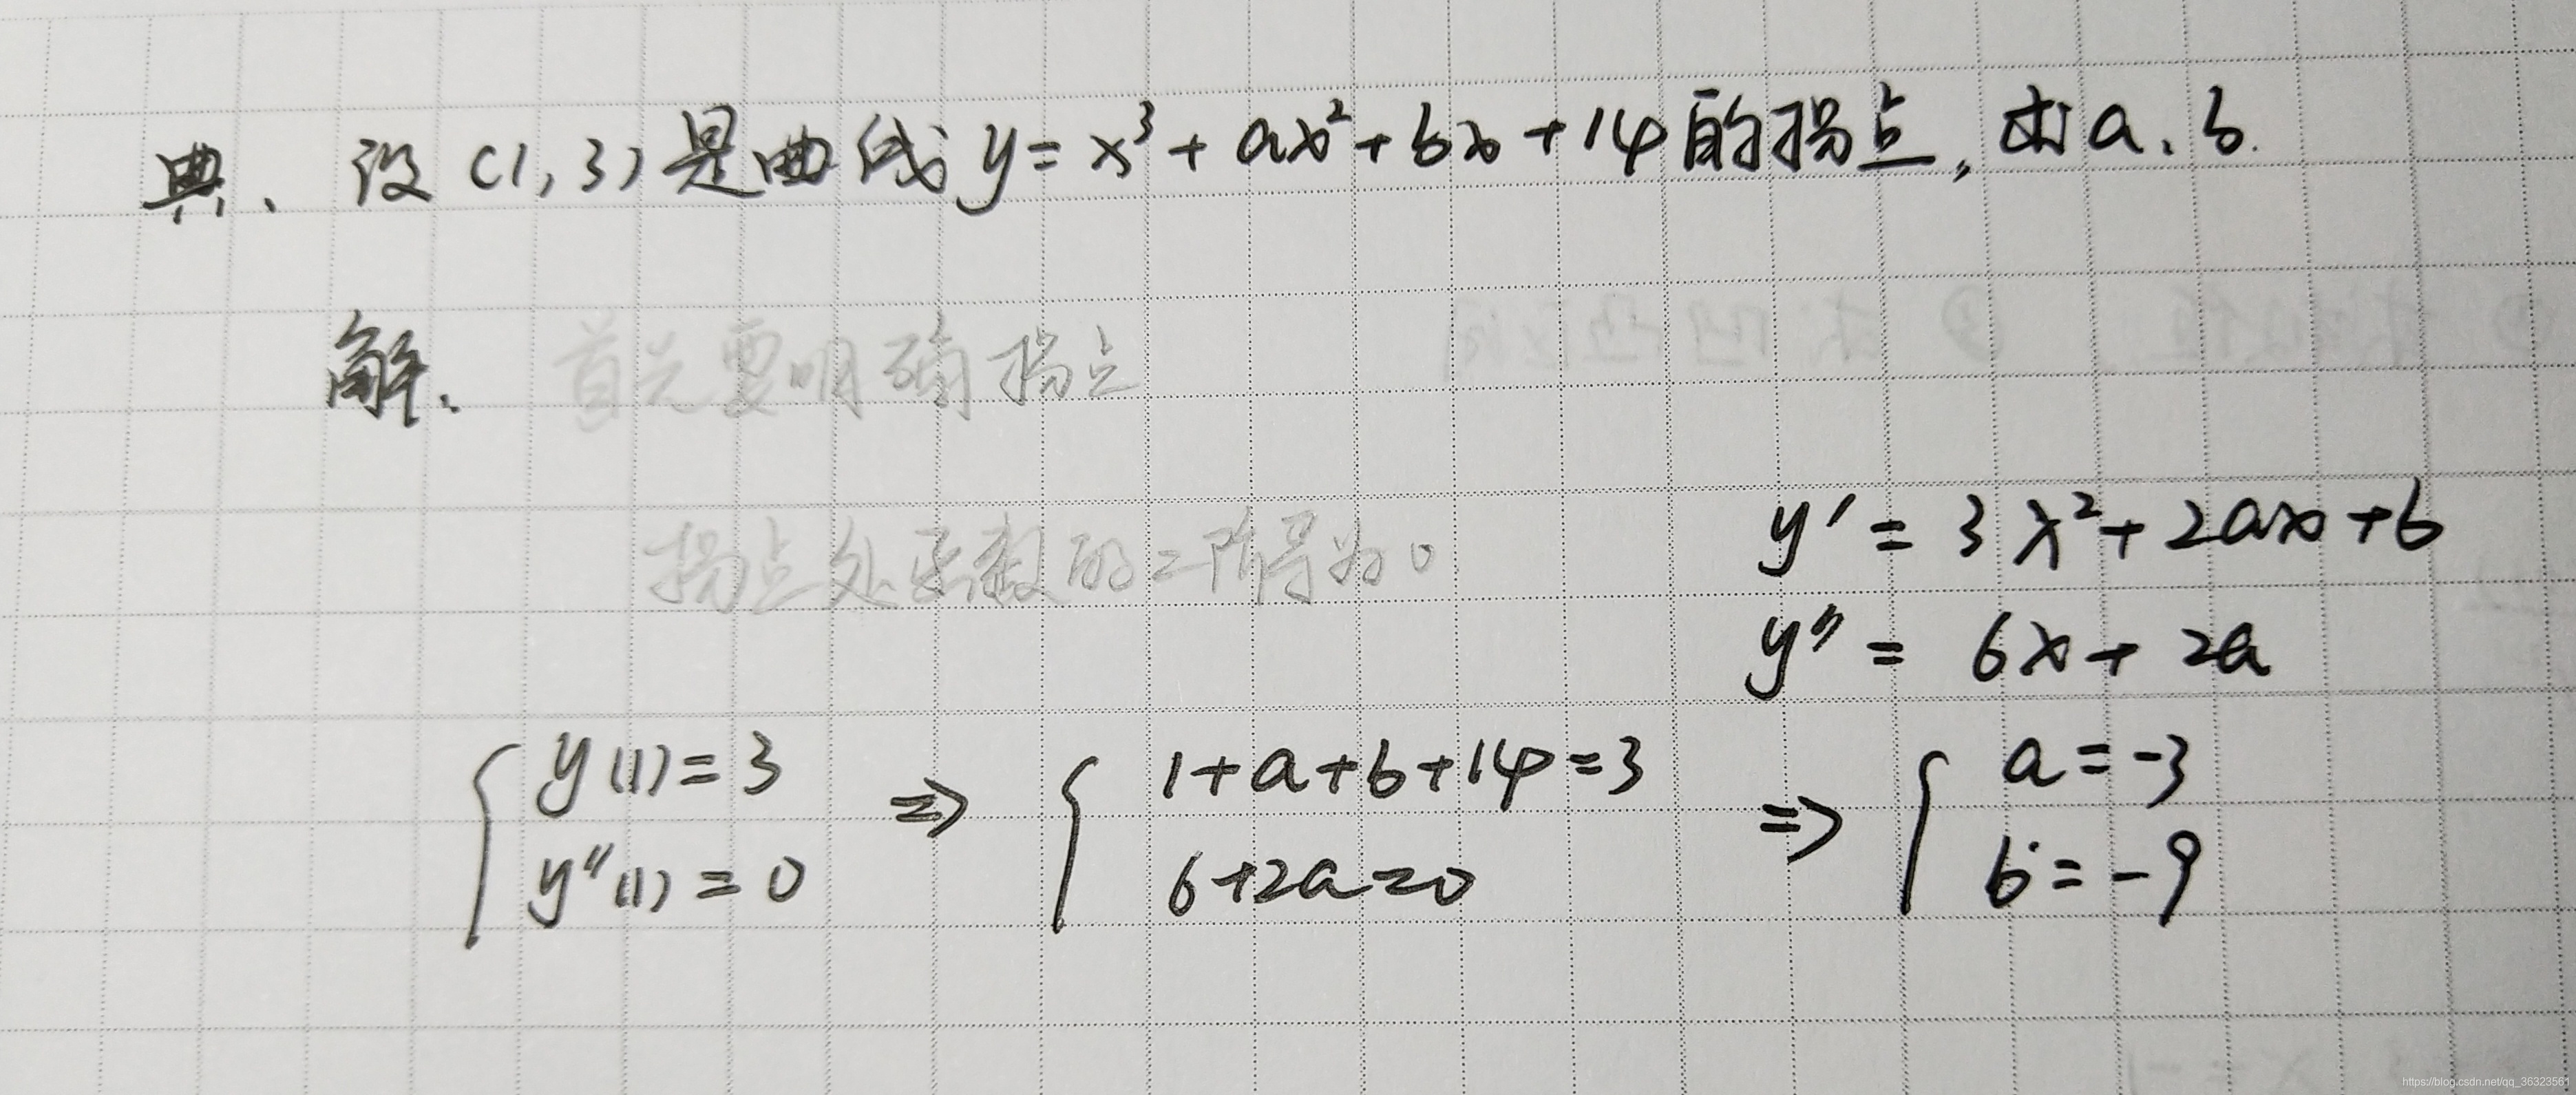 典、设(1,3)是曲线y=x³+ax²+bx+14的拐点,求a、b.
解、首先要明确拐点
拐点处函数的二阶导为0
y′=3x²+2ax+b
y″=6x+2a
{ y(1)=3 ⇒ { 1+a+b+14=3 ⇒ { a=-3
y″(1)=0 6+2a=0 b=-9
https://blog.csdn.net/qq_36323561